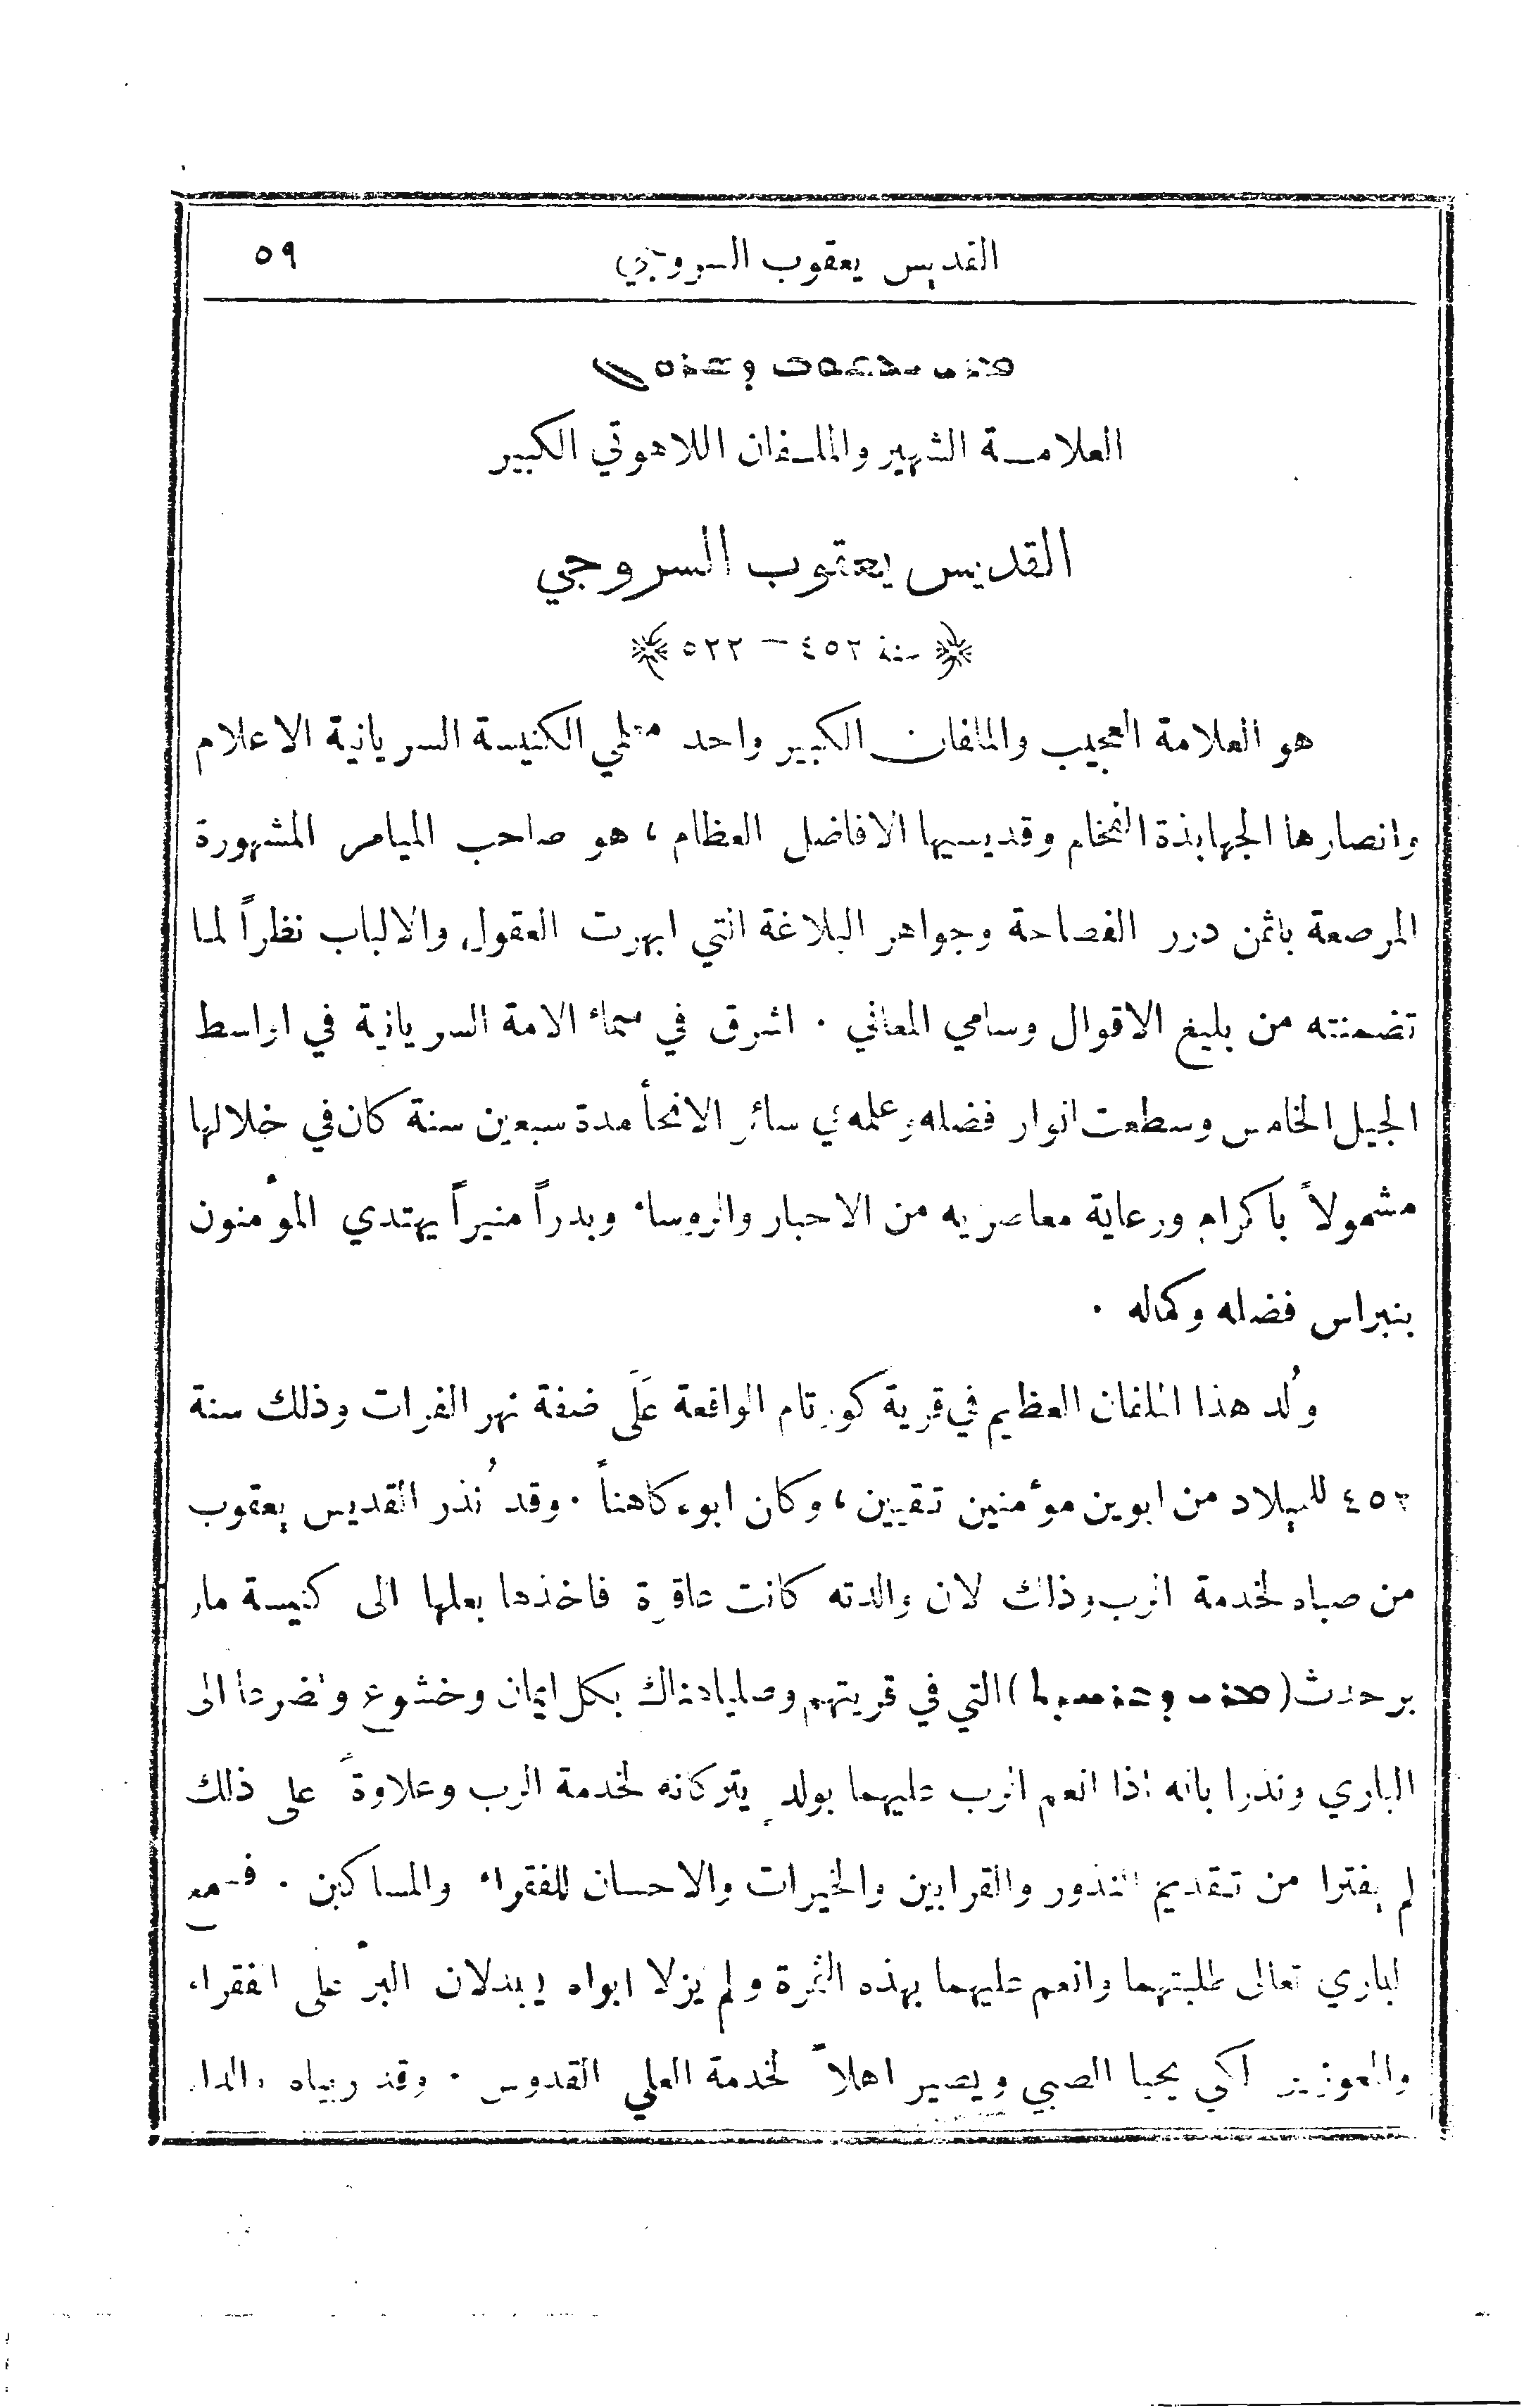 القديس يعقوب السروجي ٥٩
ܡܪܝ ܝܥܩܘܒ ܕܣܪܘܓ
العلامة الشهير والملفان اللاهوتي الكبير
القديس يعقوب السروجي
سنة ٤٥٢ – ٥٢٢
هو العلامة العجيب والملفان الكبير واحد معلمي الكنيسة السريانية الاعلام
وانصارها الجهابذة الفخام وقديسيها الافاضل العظام ، هو صاحب الميامر المشهورة
المرصعة باثمن درر الفصاحة وجواهر البلاغة التي ابهرت العقول والالباب نظراً لما
تضمنته من بليغ الاقوال وسامي المعاني . اشرق في سماء الامة السريانية في اواسط
الجيل الخامس وسطعت انوار فضله وعلمه في سائر الانحأ مدة سبعين سنة كان في خلالها
مشمولاً باكرام ورعاية معاصريه من الاحبار والروساء وبدراً منيراً يهتدي المؤمنون
بنبراس فضله وكماله .
وُلد هذا الملفان العظيم في قرية كورتام الواقعة عَلَى ضفة نهر الفرات وذلك سنة
٤٥٢ للميلاد من ابوين مؤمنين تقيين ، وكان ابوه كاهناً . وقد نُذر القديس يعقوب
من صباه لخدمة الرب وذلك لان والدته كانت عاقرة فاخذها بعلها الى كنيسة مار
برحدث ( ܡܪܝ ܕܒܪܚܕܬܐ ) التي في قريتهم وصليا هناك بكل ايمان وخشوع وتضرعا الى
الباري ونذرا بانه اذا انعم الرب عليهما بولدٍ يتركانه لخدمة الرب وعلاوةً على ذلك
لم يفترا من تقديم النذور والقرابين والخيرات والاحسان للفقراء والمساكين . فسمع
الباري تعالى طلبتهما وانعم عليهما بهذه الثمرة ولم يزلا ابواه يبذلان البرّ على الفقراء
والمعوزين لكي يحيا الصبي ويصير اهلاً لخدمة العلي القدوس . وقد رباه والداه